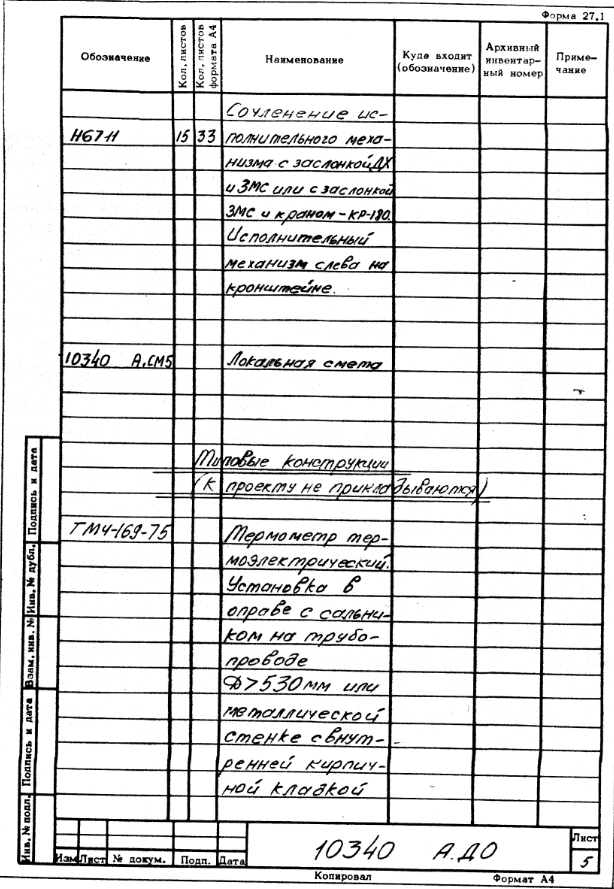 Форма 27.1
Обозначение Кол. листов Кол. листов формата А4 Наименование Куда входит (обозначение) Архивный инвентарный номер Примечание
Сочленение ис-
Н67-Н 15 33 полнительного меха-
низма с заслонкой ДХ
и ЗМС или с заслонкой
ЗМС и краном-КР-180.
Исполнительный
механизм слева на
кронштейне.
10340 А.СМ5 Локальная смета
Типовые конструкции
(к проекту не прикладываются)
ТМ4-169-75 Термометр тер-
моэлектрический.
Установка в
оправе с сальни-
ком на трубо-
проводе
Ф>530мм или
металлической
стенке с внут-
ренней кирпич-
ной кладкой
Инв. № подл. Подпись и дата Взам. инв. № Инв. № дубл. Подпись и дата
10340 А.ДО
Лист
5
Изм Лист № докум. Подп. Дата
Копировал Формат А4